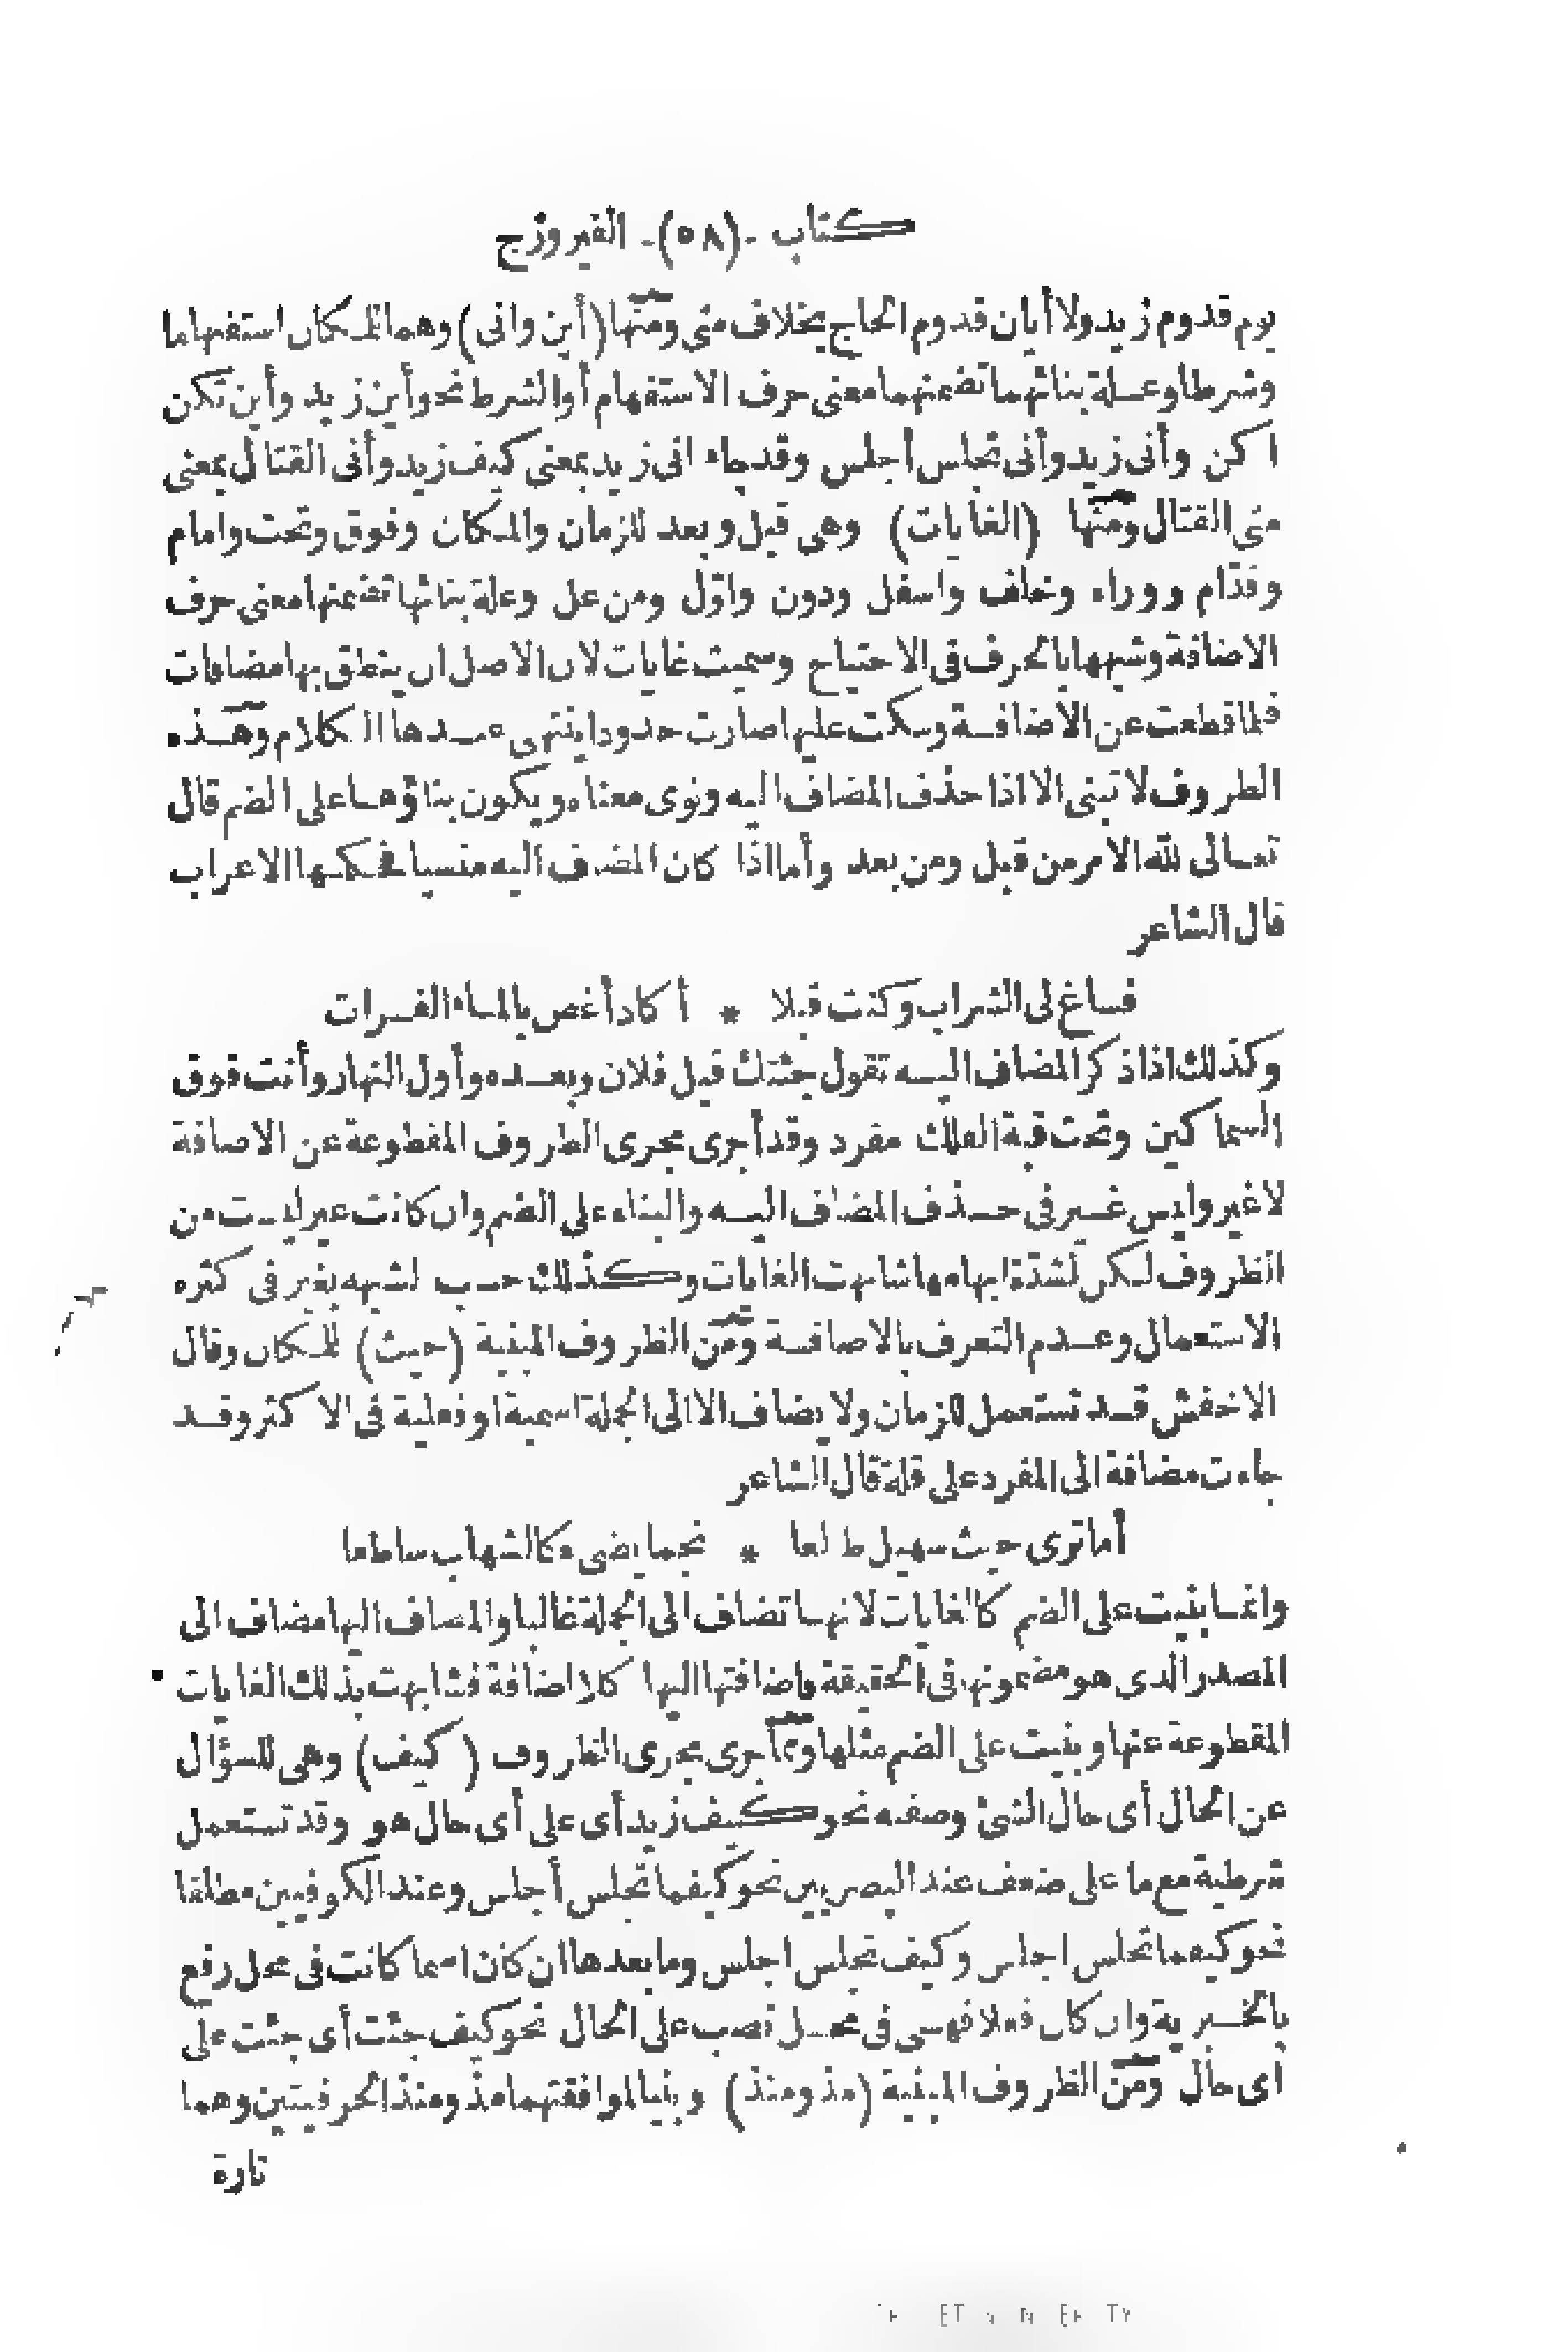 كتاب -(٥٨)- الفيروزج
يوم قدوم زيد ولا أيان قدوم الحاج بخلاف متى ومنها (أين وانى) وهما للمكان استفهاما
وشرطا وعلة بنائهما تضمنهما معنى حرف الاستفهام أو الشرط نحو أين زيد وأين تكن
اكن وأنى زيد وأنى تجلس أجلس وقد جاء انى زيد بمعنى كيف زيد وأنى القتال بمعنى
متى القتال ومنها (الغايات) وهى قبل وبعد للزمان والمكان وفوق وتحت وامام
وقدّام ووراء وخلف واسفل ودون واوّل ومن عل وعلة بنائها تضمنها معنى حرف
الاضافة وشبهها بالحرف فى الاحتياج وسميت غايات لان الاصل ان ينطق بها مضافات
فلما قطعت عن الاضافة وسكت عليها صارت حدودا ينتهى عندها الكلام وهذه
الظروف لا تبنى الا اذا حذف المضاف اليه ونوى معناه ويكون بناؤها على الضم قال
تعالى لله الامر من قبل ومن بعد وأما اذا كان المضاف اليه منسيا فحكمها الاعراب
قال الشاعر
فساغ لى الشراب وكنت قبلا * أكاد أغص بالماء الفرات
وكذلك اذا ذكر المضاف اليه تقول جئتك قبل فلان وبعده وأول النهار وأنت فوق
السماكين وتحت قبة الفلك مفرد وقد أجرى مجرى الظروف المقطوعة عن الاضافة
لا غير وليس غير فى حذف المضاف اليه والبناء على الضم وان كانت غير ليست من
الظروف لكن لشدّة ابهامها شابهت الغايات وكذلك حسب لشبهه بغير فى كثرة
الاستعمال وعدم التعرف بالاضافة ومن الظروف المبنية (حيث) للمكان وقال
الاخفش قد تستعمل للزمان ولا يضاف الا الى الجملة اسمية او فعلية فى الاكثر وقد
جاءت مضافة الى المفرد على قلة قال الشاعر
أما ترى حيث سهيل طالعا * نجما يضىء كالشهاب ساطعا
وانما بنيت على الضم كالغايات لانها تضاف الى الجملة غالبا والمضاف اليها مضاف الى
المصدر الذى هو مضمونها فى الحقيقة فاضافتها اليها كلا اضافة فشابهت بذلك الغايات
المقطوعة عنها وبنيت على الضم مثلها ومما أجرى مجرى الظروف (كيف) وهى للسؤال
عن الحال أى حال الشئ وصفه نحو كيف زيد أى على أى حال هو وقد تستعمل
شرطية مع ما على ضعف عند البصريين نحو كيفما تجلس أجلس وعند الكوفيين مطلقا
نحو كيفما تجلس اجلس وكيف تجلس اجلس وما بعدها ان كان اسما كانت فى محل رفع
بالخبرية وان كان فعلا فهى فى محل نصب على الحال نحو كيف جئت أى جئت على
اى حال ومن الظروف المبنية (مذ ومنذ) وبنيا لموافقتهما مذ ومنذ الحرفيتين وهما
تارة